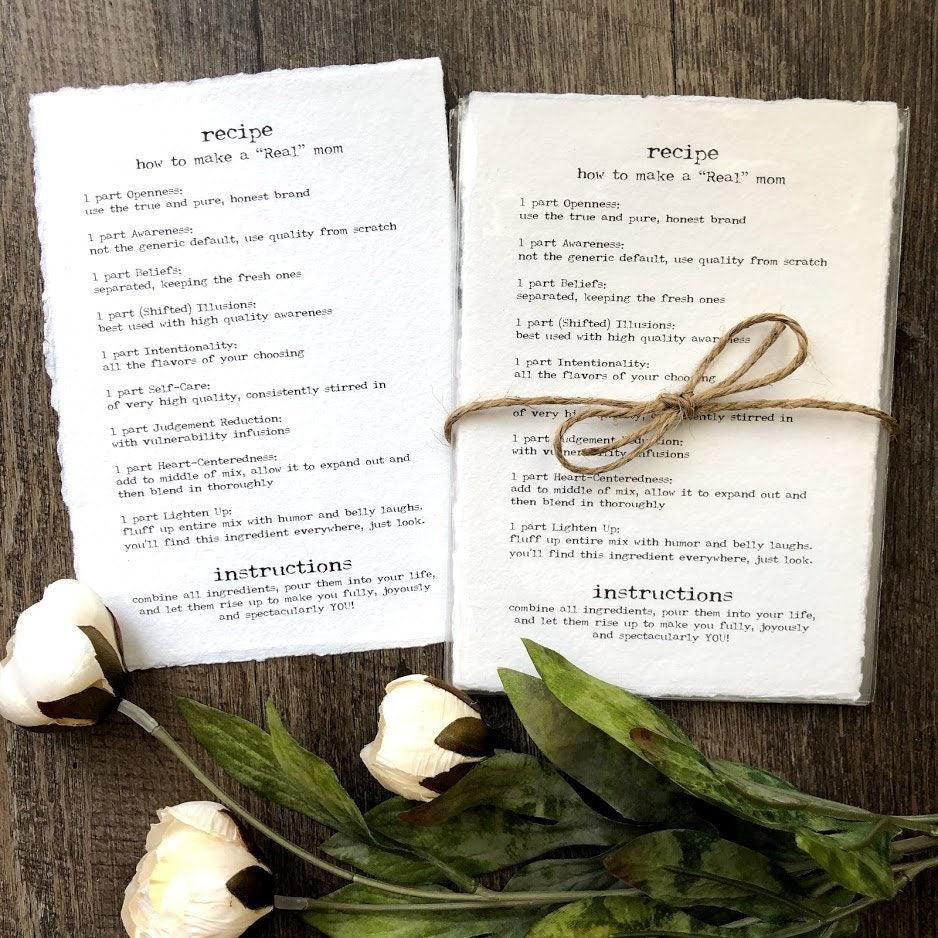 recipe
how to make a "Real" mom
1 part Openness:
use the true and pure, honest brand
1 part Awareness:
not the generic default, use quality from scratch
1 part Beliefs:
separated, keeping the fresh ones
1 part (Shifted) Illusions:
best used with high quality awareness
1 part Intentionality:
all the flavors of your choosing
1 part Self-Care:
of very high quality, consistently stirred in
1 part Judgement Reduction:
with vulnerability infusions
1 part Heart-Centeredness:
add to middle of mix, allow it to expand out and
then blend in thoroughly
1 part Lighten Up:
fluff up entire mix with humor and belly laughs.
you'll find this ingredient everywhere, just look.
instructions
combine all ingredients, pour them into your life,
and let them rise up to make you fully, joyously
and spectacularly YOU!
recipe
how to make a "Real" mom
1 part Openness:
use the true and pure, honest brand
1 part Awareness:
not the generic default, use quality from scratch
1 part Beliefs:
separated, keeping the fresh ones
1 part (Shifted) Illusions:
best used with high quality awareness
1 part Intentionality:
all the flavors of your choosing
of very high quality, consistently stirred in
1 part Judgement Reduction:
with vulnerability infusions
1 part Heart-Centeredness:
add to middle of mix, allow it to expand out and
then blend in thoroughly
1 part Lighten Up:
fluff up entire mix with humor and belly laughs.
you'll find this ingredient everywhere, just look.
instructions
combine all ingredients, pour them into your life,
and let them rise up to make you fully, joyously
and spectacularly YOU!